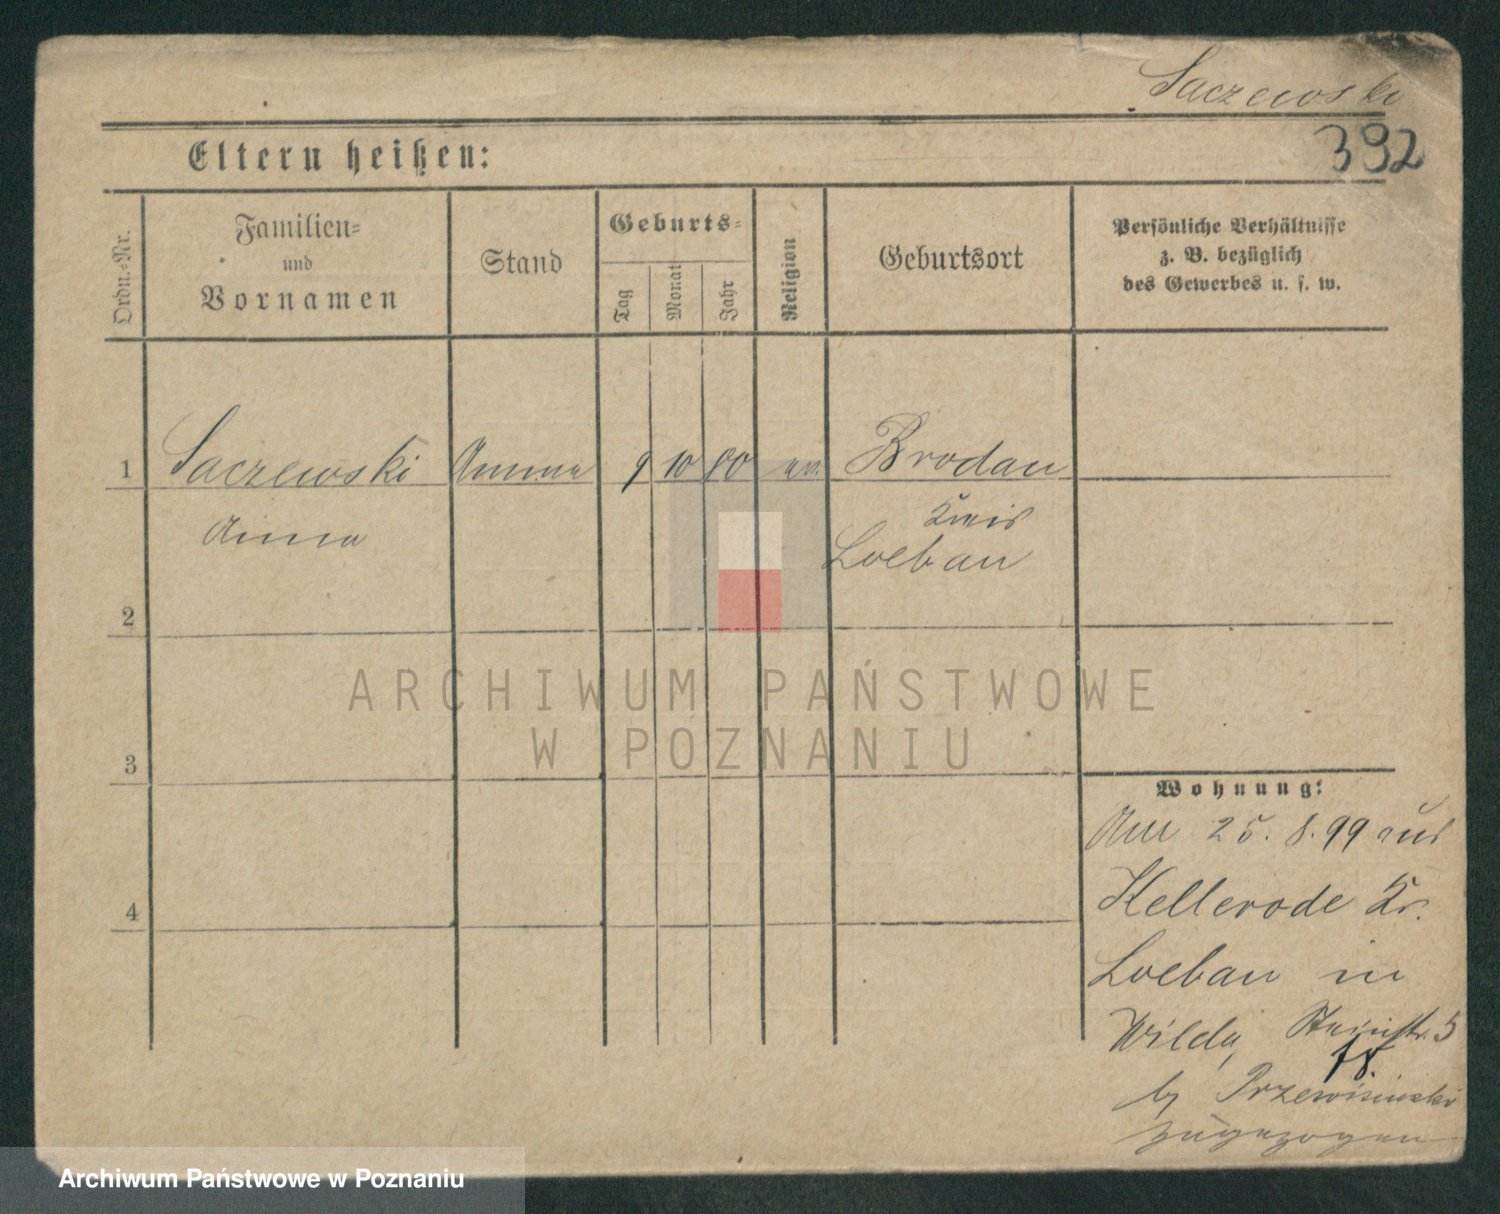 Saczewski
392
Eltern heißen:
Ordn.-Nr.
Familien-
und
Vornamen
Stand
Geburts-
Tag
Monat
Jahr
Religion
Geburtsort
Persönliche Verhältnisse
z. B. bezüglich
des Gewerbes u. s. w.
1 Saczewski Amme 9 10 80 ev. Brodau
Anna
Kreis
Loebau
2
3
4
ARCHIWUM PAŃSTWOWE
W POZNANIU
Wohnung:
Am 25. 8. 99 aus
Hellerode Kr.
Loebau in
Wilda, 5
18.
by
zugezogen
Archiwum Państwowe w Poznaniu